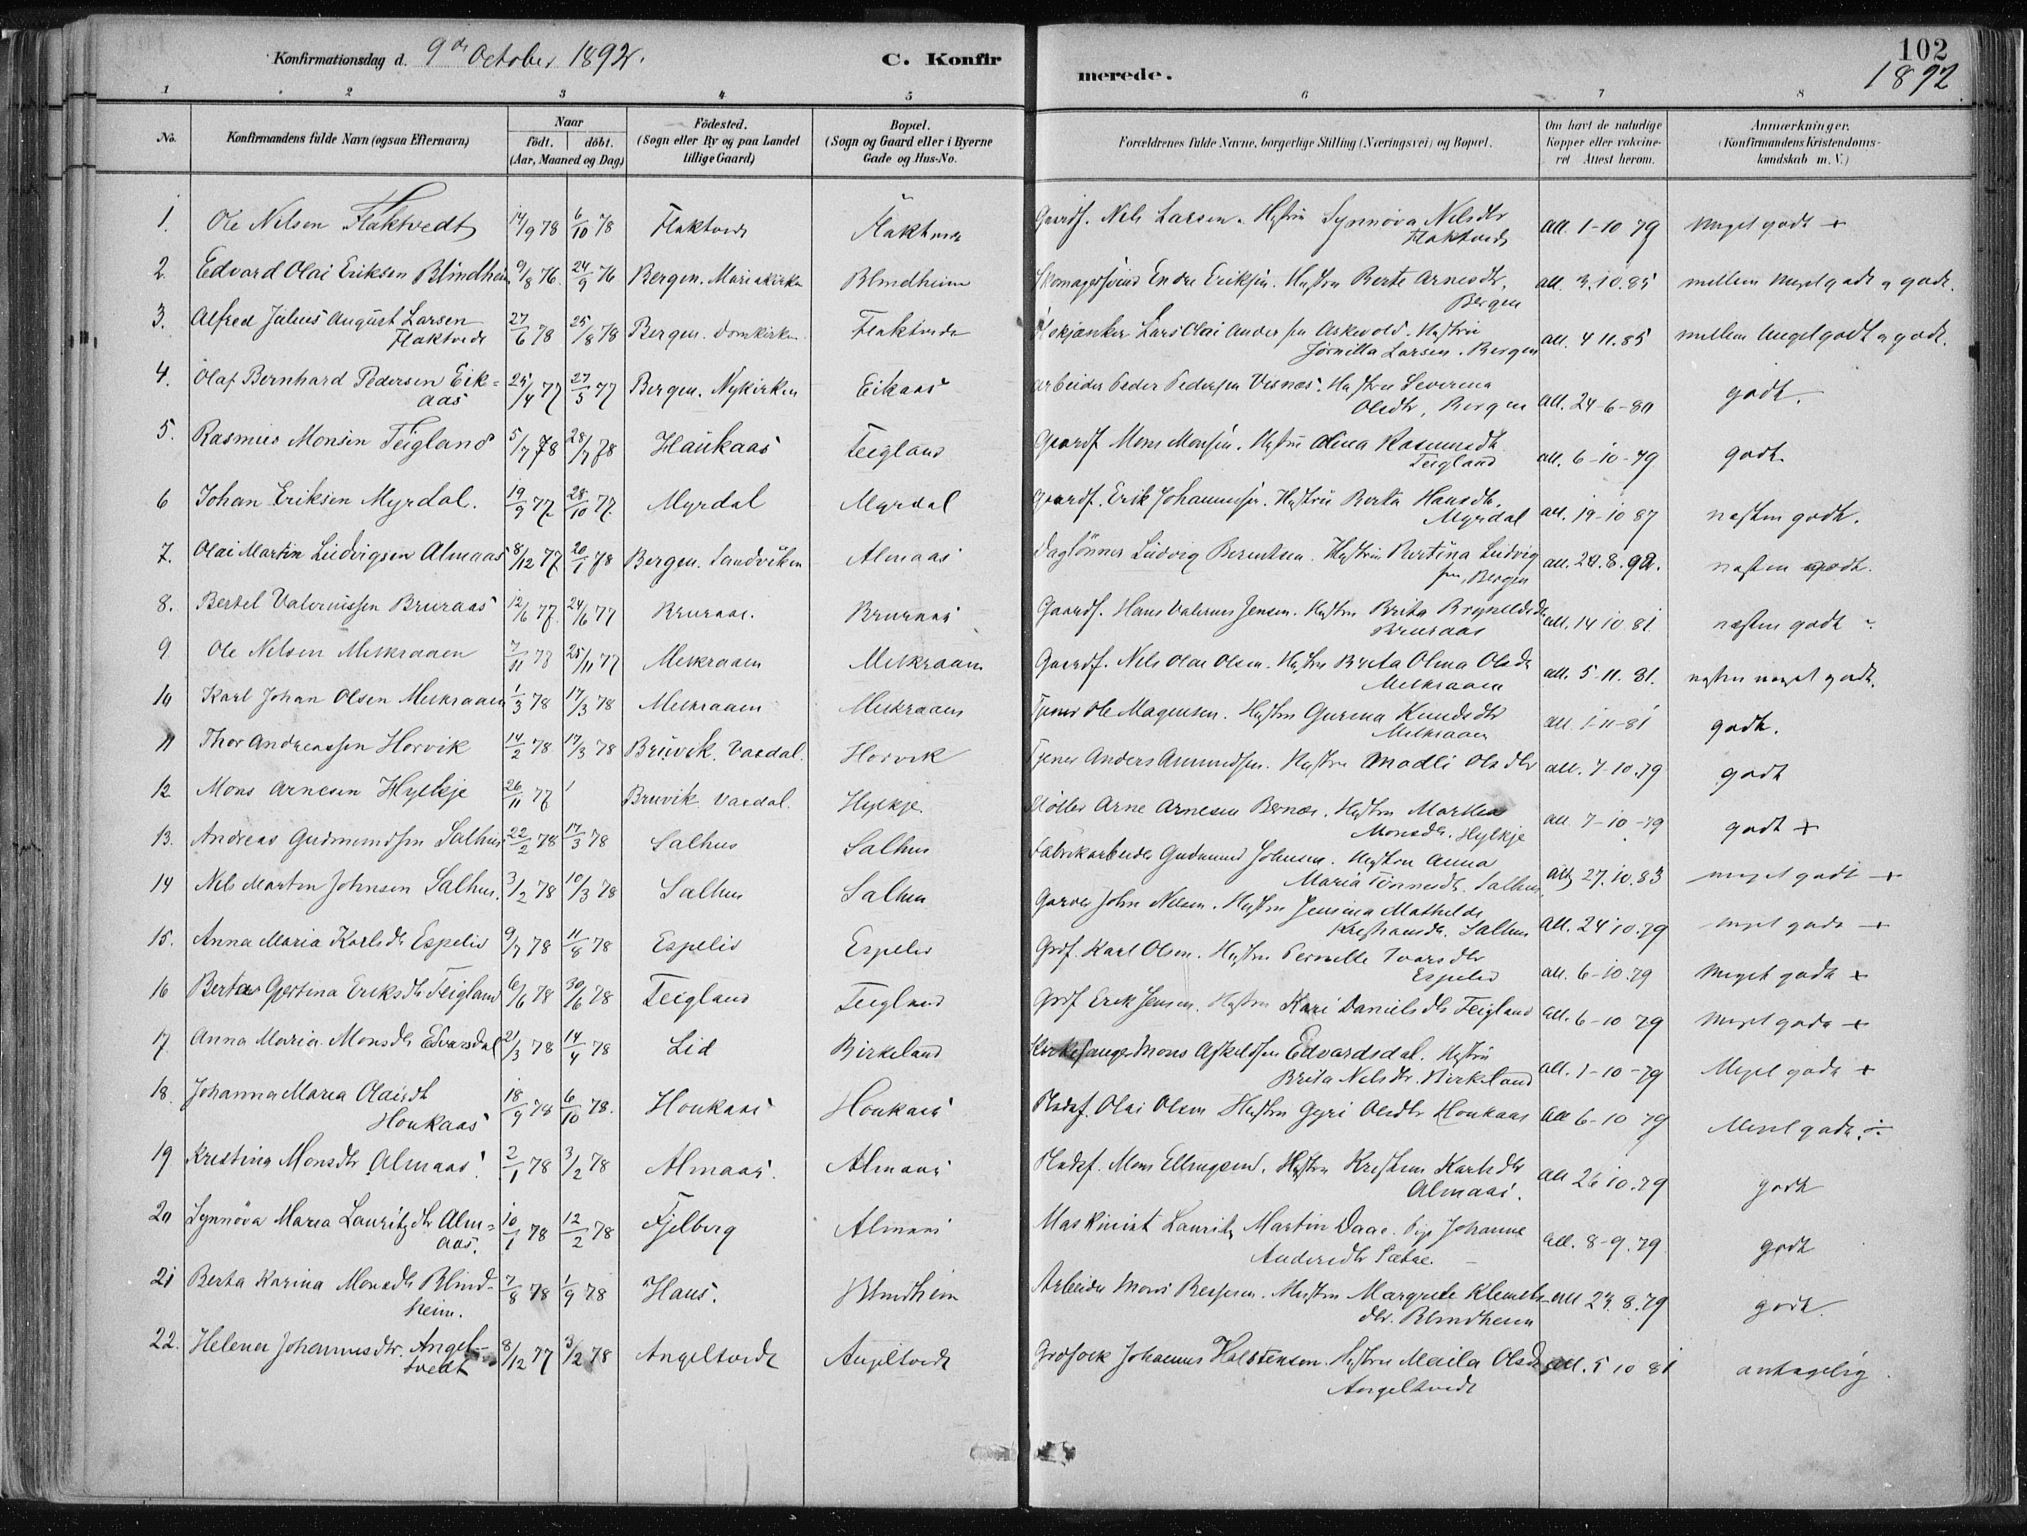 Konfirmationsdag d. 9de October 1892.
C. Konfirmerede.
102
1892
1 2 3 4 5 6 7 8
No.
Konfirmandens fulde Navn (ogsaa Efternavn)
Naar
Födt. döbt.
(Aar, Maaned og Dag)
Födested.
(Sogn eller By og paa Landet
tillige Gaard)
Bopæl.
(Sogn og Gaard eller i Byerne
Gade og Hus-No.
Forældrenes fulde Navne, borgerlige Stilling (Næringsvei) og Bopæl.
Om havt de naturlige
Kopper eller vaccine-
ret Attest herom.
Anmærkninger.
(Konfirmandens Kristendoms-
kundskab m. V.)
1. Ole Nilsen Flaktvedt 14/9 78 6/10 78 Flaktvedt Flaktvedt Gaardf. Nils Larsen. Hustru Synnöva Nilsdtr Flaktvedt att. 1-10 79 Meget godt +
2. Edvard Olai Eriksen Blindheim 9/8 76. 24/9 76 Bergen. Mariakirken Blindheim Skomagersvend Endre Eriksen. Hustru Berte Arnesdtr, Bergen att. 3.10.85 mellem Meget godt og godt.
3. Alfred Julius August Larsen Flaktvedt 27/6 78 25/8 78 Bergen. Domkirken Flaktvedt Lars Olai Andersen Askevold. Hustru Jörnetta Larsen. Bergen att. 4 11.85 mellem Meget godt og godt.
4. Olaf Bernhard Pedersen Eik=
aas 25/4 77 27/5 77 Bergen. Nykirken Eikaas Arbeider Peder Pedersen Visnæs. Hustru Severina Olsdtr, Bergen att. 24-6-80 godt.
5. Rasmus Monsen Teigland 5/7 78 28/7 78 Haukaas Teigland Gaardf. Mons Monsen. Hustru Olina Rasmusdtr Teigland att. 6-10-79 godt.
6 Johan Eriksen Myrdal. 19/9 77. 28/10 77. Myrdal Myrdal Gaardf. Erik Johannessen. Hustru Berta Hansdtr. Myrdal att. 19-10 87 næsten godt.
7. Olai Martin Ludvigsen Almaas 8/12 77 20/1 78 Bergen. Sandviken Almaas Daglönner Ludvig Berentsen. Hustru Bertina Ludvig
sen, Bergen att. 24.8.92. næsten godt.
8. Bertel Valernissen Bruraas 12/6 77. 24/6 77 Bruraas. Bruraas Gaardf. Hans Valernes Jensen. Hustru Brita Brynildsdtr Bruraas att. 14 10 81. næsten godt
9 Ole Nilsen Melkraaen 7/11 78 25/11 77 Melkraaen Melkraaen Gaardf. Nils Olai Olsen. Hustru Berta Olina Olsdtr Melkraaen att. 5-11. 81. næsten meget godt.
10 Karl Johan Olsen Melkraaen 1/3 78 17/3 78 Melkraaen Melkraaen Tjener Ole Magnusen. Hustru Gurina Knudsdtr Melkraaen att. 1-11-81 godt.
11 Thor Andreassen Horvik 14/2 78 17/3 78 Bruvik. Vaxdal. Horvik Tjener Anders Amundsen. Hustru Madli Olsdtr att. 7-10.79 godt
12 Mons Arnesen Hylkje 26/11 77 Bruvik Vaxdal. Hylkje. Möller Arne Arnesen Bernæs. Hustru Marthea Monsdtr. Hylkje att. 7-10-79 godt +
13. Andreas Gudmundsen Salhus 22/2 78 17/3 78 Salhus Salhus Fabrikarbeider Gudmund Johnsen. Hustru Anna Maria Tönnesdtr. Salhus att 27.10.83 meget godt +
14 Nils Martin Johnsen Salhus. 3/2 78 10/3 78 Salhus Salhus Garver John Nilsen. Hustru Jensina Mathilde Kristiansdtr. Salhus att. 24 10.79 meget godt +
15. Anna Maria Karlsdtr Espelid 9/7 78 11/8 78 Espelid Espelid Grdf. Karl Olsen. Hustru Pernille Ivarsdtr Espelid att. 6-10.79 Meget godt +
16 Berta Gjertina Eriksdtr Teigland 6/6 78 30/6 78 Teigland Teigland Grdf. Erik Jensen. Hustru Kari Danielsdtr Teigland att. 6-10 79 Meget godt +
17 Anna Maria Monsdtr Edvarsdal 21/3 78 14/4 78 Lid Birkeland Kirkesanger Mons Askeldsen Edvardsdal. Hustru Brita Nilsdtr. Birkeland att. 1-10-79 Meget godt +
18. Johanna Maria Olaisdt
Houkaas 18/9 78 6/10 78. Houkaas Houkaas Pladsf. Olai Olsen Hustru Gyri Olsdtr Houkaas att 6-10 79 Meget godt
19 Kristina Monsdtr Almaas. 2/1 78 3/2 78 Almaas. Almaas Pladsf. Mons Ellingsend. Hustru Kristine Karlsdtr Almaas. att 26 10.79 godt
20 Synnöva Maria Lauritzdtr Alm=
aas. 10/1 78 12/2 78 Fjelberg Almaas Maskinist Lauritz Martin Daae. Pige Johanne Andersdtr Sætre. att. 8-9.79 godt
21 Berta Karina Monsdtr Blind-
heim. 7/8 78 1/9 78 Haus. Blindheim Arbeider Mons Hustru Margrete Klemets-
dtr. Blindheim att 23.8.79 godt.
22. Helena Johannesdtr. Angel-
tvedt 8/12 77 3/2 78 Angeltvedt Angeltvedt Grdfolk Johannes Halstensen. Hustru Maila Olsdtr Angeltvedt att. 5 10 81 antagelig.